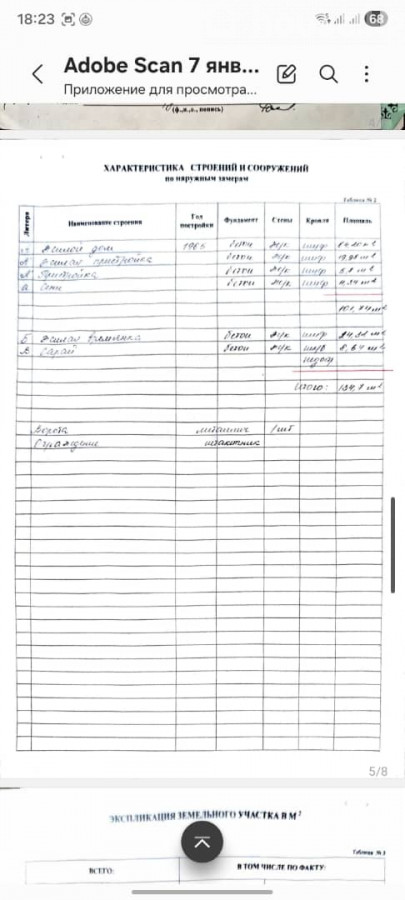 18:23 68
Adobe Scan 7 янв...
Приложение для просмотра...
(ф.,и.,о., подпись)
ХАРАКТЕРИСТИКА СТРОЕНИЙ И СООРУЖЕНИЙ
по наружным замерам
Таблица №2
Литера Наименование строения Год постройки Фундамент Стены Кровля Площадь
Жилой дом 1965 бетон ж/к шиф
А Жилая пристройка бетон ж/к шиф
А' Пристройка бетон ж/к шиф
а Сени бетон ж/к шиф
Б Жилая времянка бетон ж/к шиф
В Сарай бетон ж/к
Итого: 134,7 м²
Ворота 1шт
Ограждение штакетник
5/8
ЭКСПЛИКАЦИЯ ЗЕМЕЛЬНОГО УЧАСТКА В М²
Таблица №3
ВСЕГО: В ТОМ ЧИСЛЕ ПО ФАКТУ: